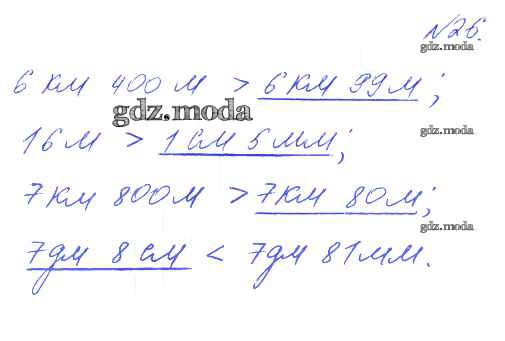 №26.
gdz.moda
6 км 400 м > 6 км 99 м;
gdz.moda
16 м > 1 см 5 мм;
gdz.moda
7 км 800 м > 7 км 80 м;
gdz.moda
7 дм 8 см < 7 дм 81 мм.